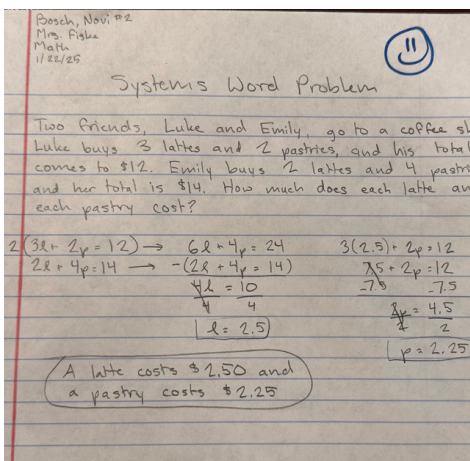 Bosch, Novi #2
Mrs. Fiske
Math
1/22/25
Systems Word Problem
Two friends, Luke and Emily, go to a coffee
Luke buys 3 lattes and 2 pastries, and his total
comes to $12. Emily buys 2 lattes and 4
and her total is $14. How much does each latte
each pastry cost?
2(3l + 2p = 12) → 6l + 4p = 24
2l + 4p = 14 → -(2l + 4p = 14)
4l = 10
4 4
l = 2.5
3(2.5) + 2p = 12
7.5 + 2p = 12
-7.5 -7.5
2p = 4.5
2 2
p = 2.25
A latte costs $2.50 and
a pastry costs $2.25